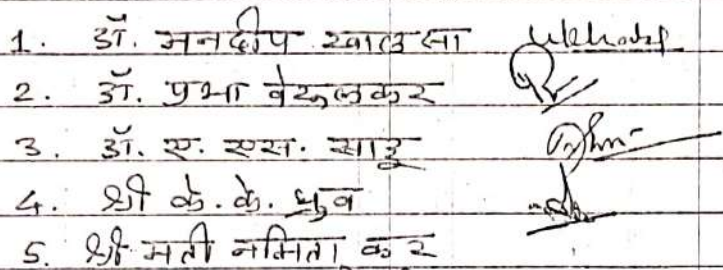 1. डॉ. मनदीप खालसा
2. डॉ. प्रभा वेरुलकर
3. डॉ. ए. एस. साहू
4. श्री के. के. ध्रुव
5. श्री मती नमिता कर